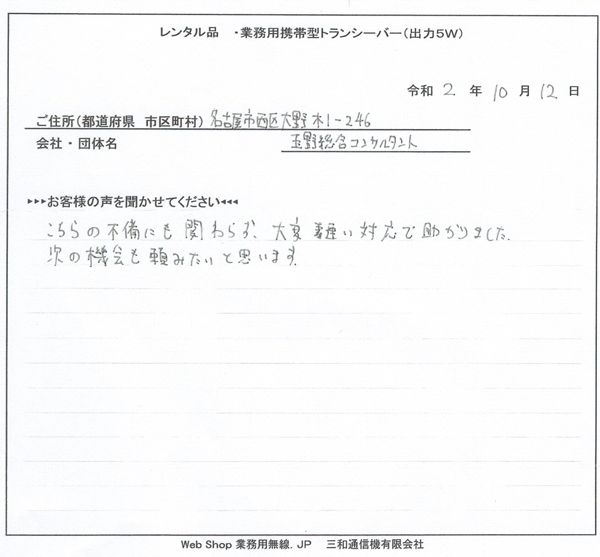 レンタル品　・業務用携帯型トランシーバー(出力5W)
令和 2 年 10 月 12 日
ご住所(都道府県　市区町村) 名古屋市西区大野木1-246
会社・団体名　玉野総合コンサルタント
▶▶▶お客様の声を聞かせてください◀◀◀
こちらの不備にも関わらず、大変 対応で助かりました。
次の機会も頼みたいと思います。
Web Shop 業務用無線. JP　三和通信機有限会社